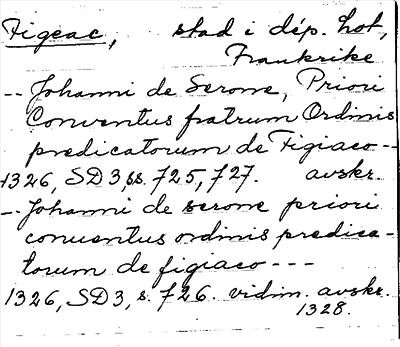 Figeac, stad i dép. Lot,
Frankrike
-- Johanni de Serone, Priori
Conventus fratrum Ordinis
predicatorum de Figiaco --
1326, SD 3, ss. 725, 727. avskr.
-- Johanni de serone priori
conuentus ordinis predica-
torum de figiaco ---
1326, SD 3, s. 726. vidim. avskr.
1328.